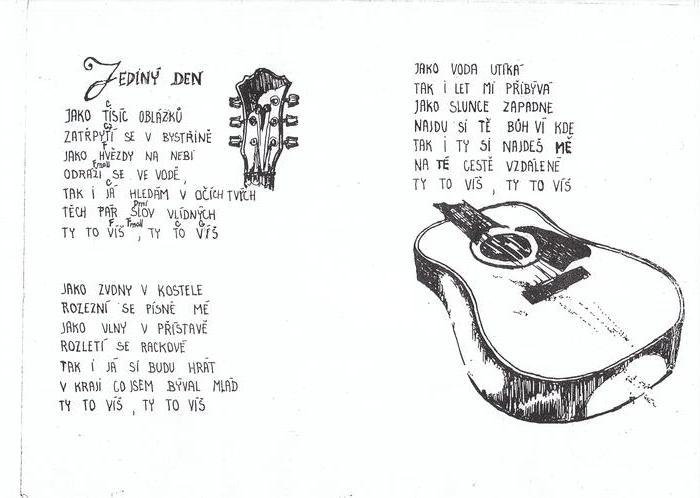 JEDINÝ DEN
C
JAKO TISÍC OBLÁZKŮ
C7
ZATŘPYTÍ SE V BYSTŘINĚ
F
JAKO HVĚZDY NA NEBI
Fmoll
ODRAZÍ SE VE VODĚ,
C
TAK I JÁ HLEDÁM V OČÍCH TVÝCH
Dmi
TĚCH PÁR SLOV VLÍDNÝCH
F Fmoll C G
TY TO VÍŠ, TY TO VÍŠ
JAKO ZVONY V KOSTELE
ROZEZNÍ SE PÍSNĚ MÉ
JAKO VLNY V PŘÍSTAVĚ
ROZLETÍ SE RACKOVÉ
TAK I JÁ SÍ BUDU HRÁT
V KRAJI CO JSEM BÝVAL MLÁD
TY TO VÍŠ, TY TO VÍŠ
JAKO VODA UTÍKÁ
TAK I LET MÍ PŘIBÝVÁ
JAKO SLUNCE ZAPADNE
NAJDU SÍ TĚ BŮH VÍ KDE
TAK I TY SÍ NAJDEŠ MĚ
NA TÉ CESTĚ VZDÁLENÉ
TY TO VÍŠ, TY TO VÍŠ